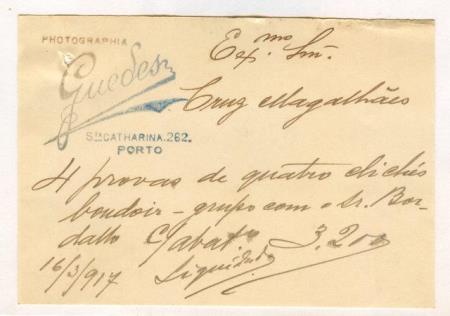 PHOTOGRAPHIA
Guedes
Sta CATHARINA. 262.
PORTO
Exmo. Snr.
Cruz Magalhães
4 provas de quatro clichés
boudoir – grupo com o Sr. Bor-
dallo C/abatto 3.200
16/3/917 Liquidado